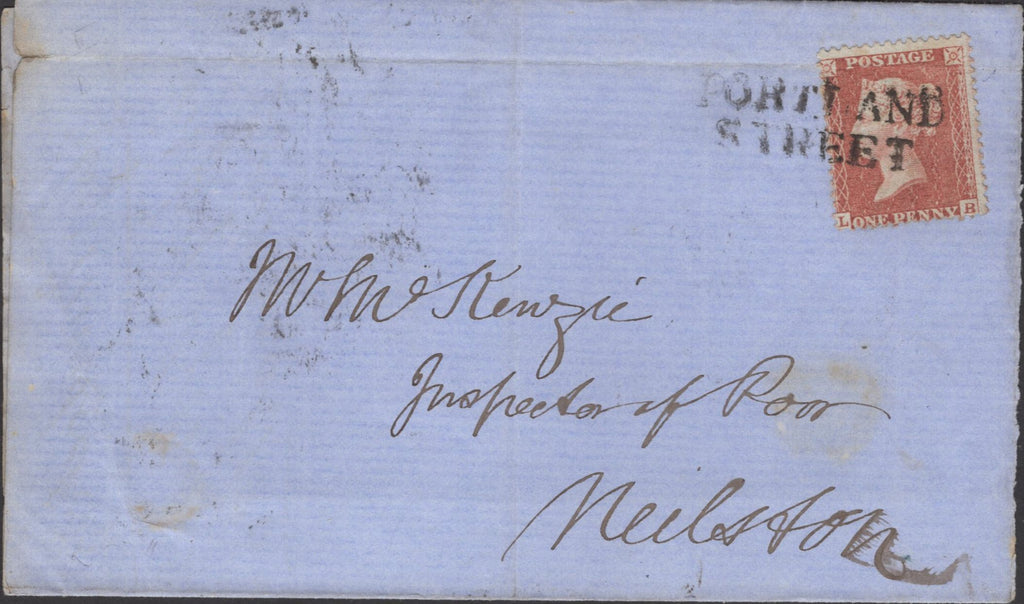 POSTAGE
PORTLAND
STREET
L ONE PENNY B
Mr McKenzie
Inspector of Poor
Neilston